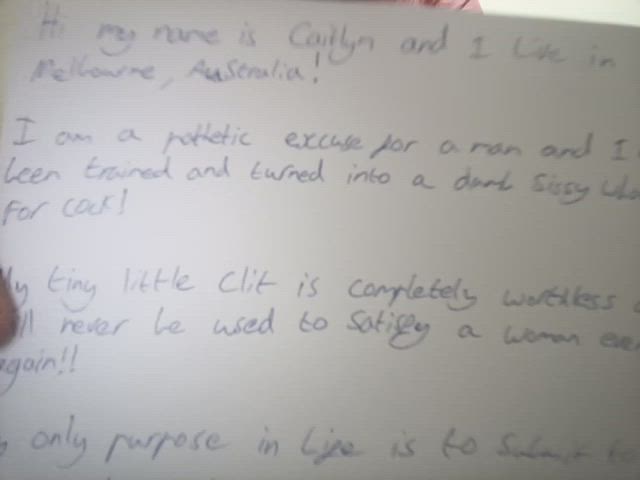 Hi my name is Caitlyn and I live in
Melbourne, Australia!
I am a pathetic excuse for a man and I
been trained and turned into a dumb Sissy
For cock!
tiny little clit is completely worthless
never be used to satisfy a woman ever
again!!
only purpose in life is to submit to